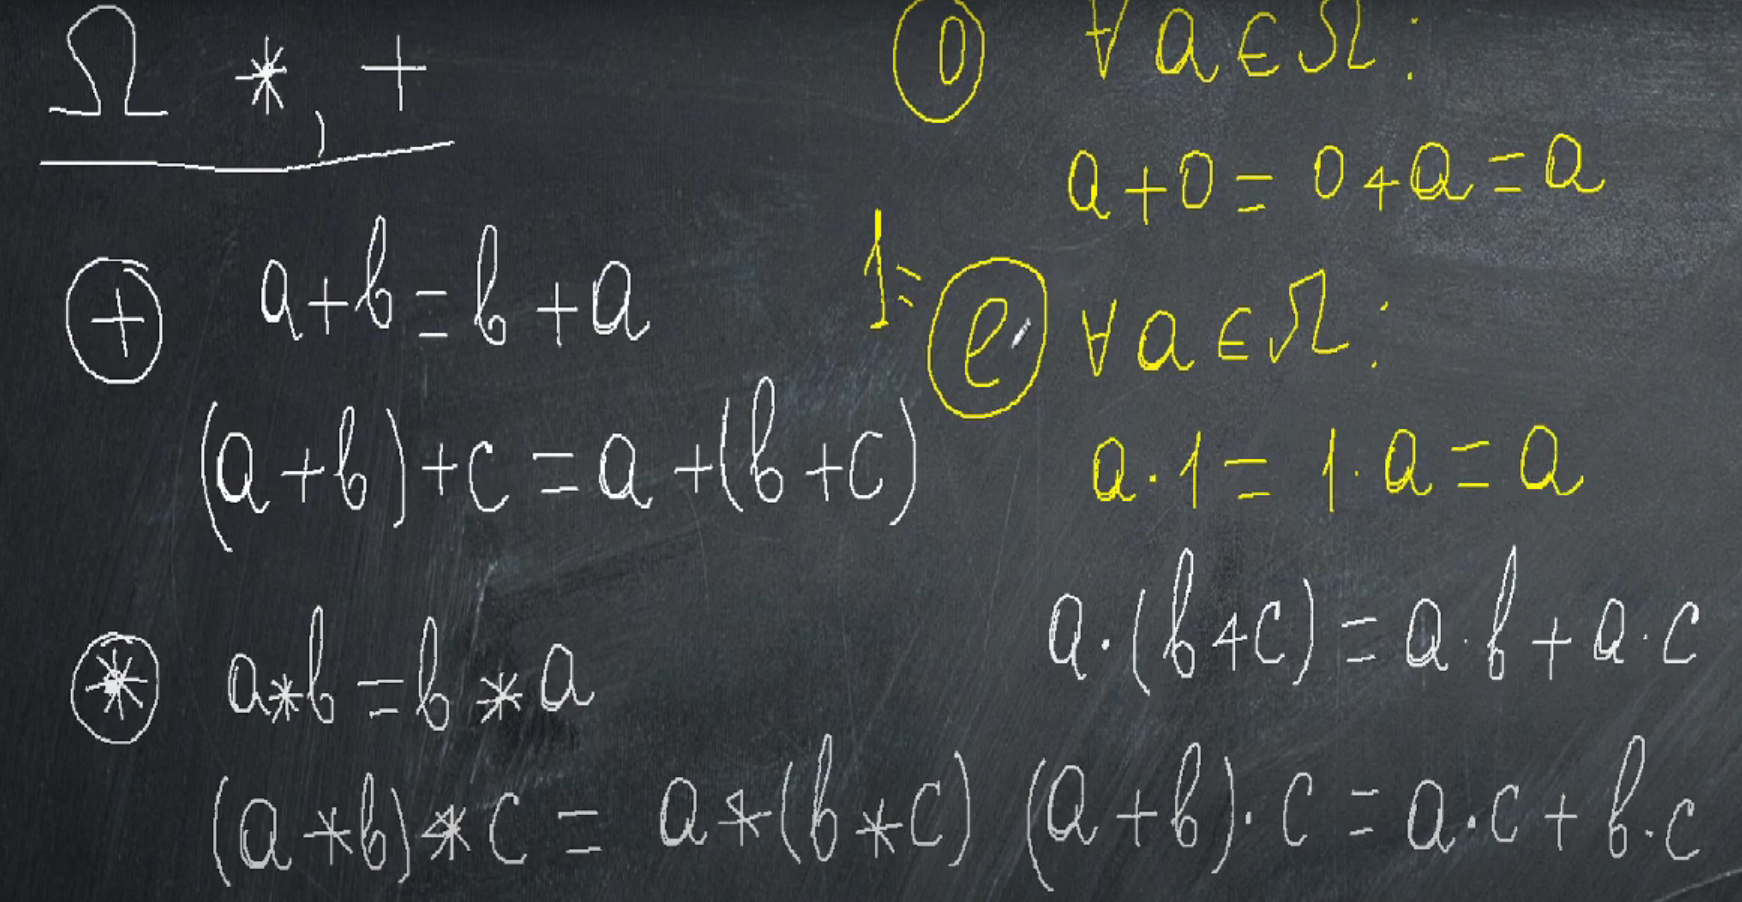 Ω *, +
⊕ a+b=b+a
(a+b)+c=a+(b+c)
⊛ a*b=b*a
(a*b)*c= a*(b*c)
0 ∀a∈Ω:
a+0=0+a=a
1= e ∀a∈Ω:
a·1=1·a=a
a·(b+c)=a·b+a·c
(a+b)·c=a·c+b·c